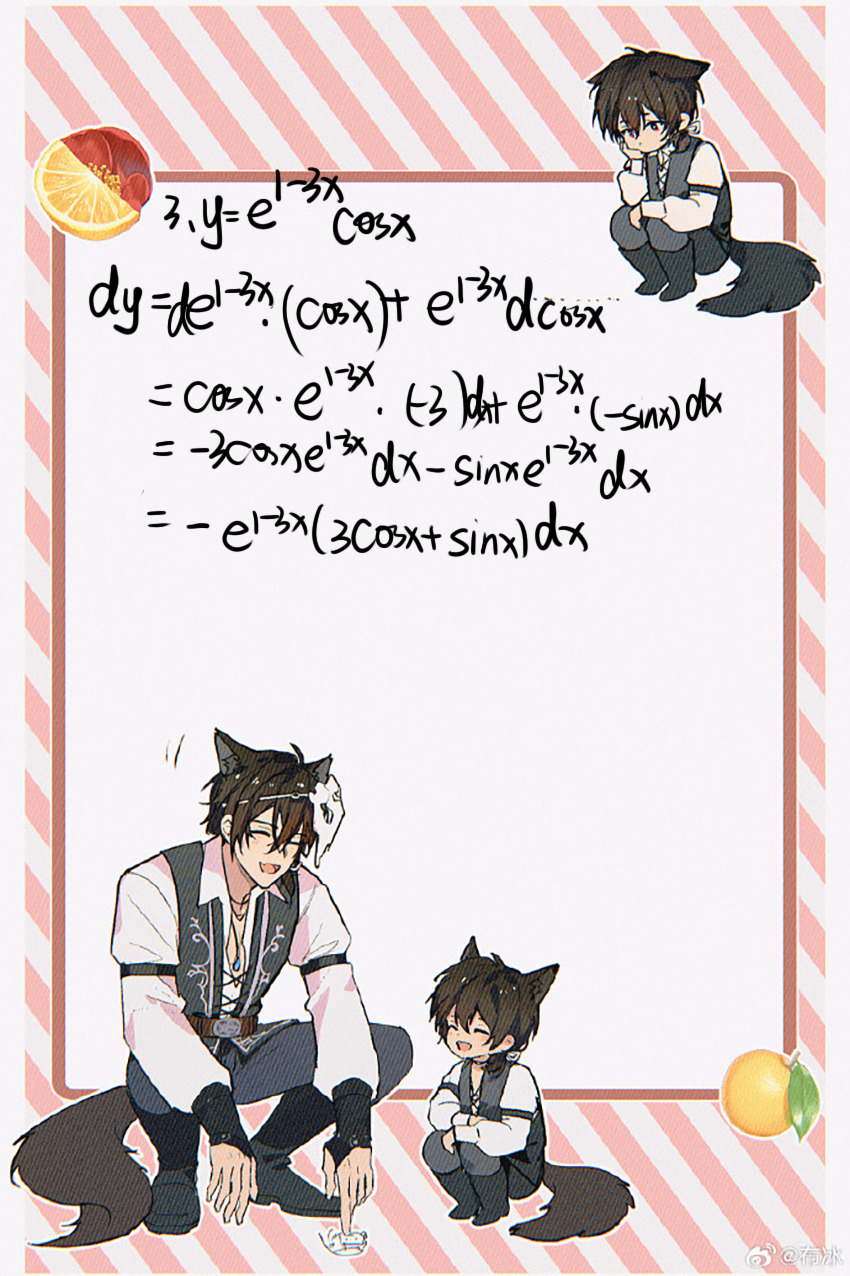 3、y=e^{1-3x}cosx
dy=de^{1-3x}·(cosx)+e^{1-3x}dcosx
=cosx·e^{1-3x}·(-3)dx+e^{1-3x}·(-sinx)dx
=-3cosxe^{1-3x}dx-sinxe^{1-3x}dx
=-e^{1-3x}(3cosx+sinx)dx
@布冰